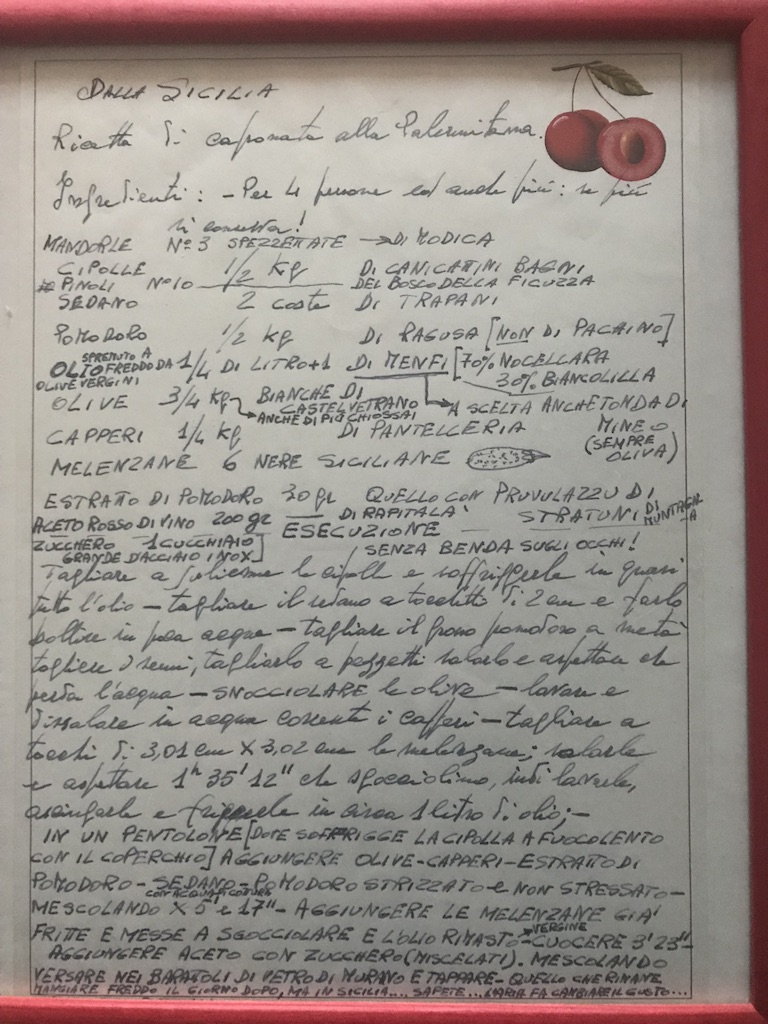 DALLA SICILIA
Ricetta di caponata alla Palermitana.
Ingredienti: - Per 4 persone ed anche più: se più
si conserva!
MANDORLE N° 3 SPEZZETTATE → DI MODICA
CIPOLLE 1/2 Kg DI CANICATTINI BAGNI
PINOLI N° 10 DEL BOSCO DELLA FICUZZA
SEDANO 2 coste DI TRAPANI
POMODORO 1/2 kg DI RAGUSA [NON DI PACHINO]
OLIO SPREMUTO A FREDDO DA OLIVE VERGINI 1/4 DI LITRO + 1 DI MENFI [70% NOCELLARA
30% BIANCOLILLA
OLIVE 3/4 Kg BIANCHE DI CASTELVETRANO → A SCELTA ANCHE TONDA DI
ANCHE DI PIÙ CHIOSSAI MINEO
CAPPERI 1/4 kg DI PANTELLERIA (SEMPRE OLIVA)
MELENZANE 6 NERE SICILIANE
ESTRATTO DI POMODORO 30 gr QUELLO CON PRUVULAZZU DI STRATUNI DI
ACETO ROSSO DI VINO 200 gr DI RAPITALA'
ZUCCHERO 1 CUCCHIAIO GRANDE D'ACCIAIO INOX] ESECUZIONE
SENZA BENDA SUGLI OCCHI!
Tagliare a le cipolle e soffriggerle in quasi
tutto l'olio - tagliare il sedano a tocchetti di 2 cm e farlo
bollire in poca acqua - tagliare il pomodoro a metà
togliere i semi, tagliarlo a pezzetti salarlo e aspettare che
perda l'acqua - SNOCCIOLARE le olive - lavare e
dissalare in acqua corrente i capperi - tagliare a
tocchi di 3,01 cm X 3,02 cm le melenzane; salarle
e aspettare 1h 35' 12" che sgocciolino, indi lavarle,
asciugarle e friggerle in circa 1 litro di olio; -
IN UN PENTOLONE [DOVE SOFFRIGGE LA CIPOLLA A FUOCO LENTO
CON IL COPERCHIO] AGGIUNGERE OLIVE - CAPPERI - ESTRATTO DI
POMODORO - SEDANO CON ACQUA COTTURA - POMODORO STRIZZATO e NON STRESSATO -
MESCOLANDO X 5' e 17" - AGGIUNGERE LE MELENZANE GIA'
FRITTE E MESSE A SGOCCIOLARE E L'OLIO RIMASTO VERGINE - CUOCERE 3' 23" -
AGGIUNGERE ACETO CON ZUCCHERO (MISCELATI). MESCOLANDO
VERSARE NEI BARATOLI DI VETRO DI MURANO E TAPPARE - QUELLO CHE RIMANE
MANGIARE FREDDO IL GIORNO DOPO, MA IN SICILIA... SAPETE... L'ARIA FA CAMBIARE IL GUSTO...